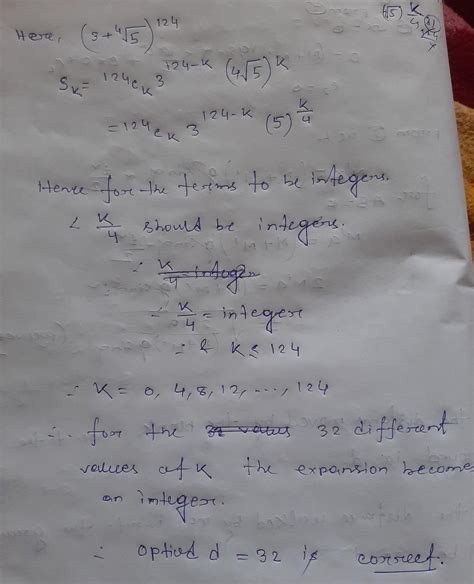 Here, (3+⁴√5)¹²⁴
S_K = ¹²⁴C_K 3^(124-K) (⁴√5)^K
= ¹²⁴C_K 3^(124-K) (5)^(K/4)
Hence for the terms to be integers.
K/4 should be integers.
∵ K/4 = integer
∴ K/4 = integer
∴ & K ≤ 124
∴ K = 0, 4, 8, 12, ..., 124
∴ for the 32 values 32 different
values of K the expansion become
an integer.
∴ optied d = 32 is correct.